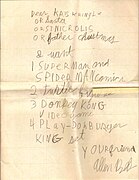 Dear KRIS KRINGLE
OR Santa
OR ST NICKOLIS
OR father christmas
I want
1 SUPERMAN and
SPIDER MAN comic
2
3 DONKEY KONG
video game
4 PLAY-DOH BURGER
KING set
YOUR friend
Allen